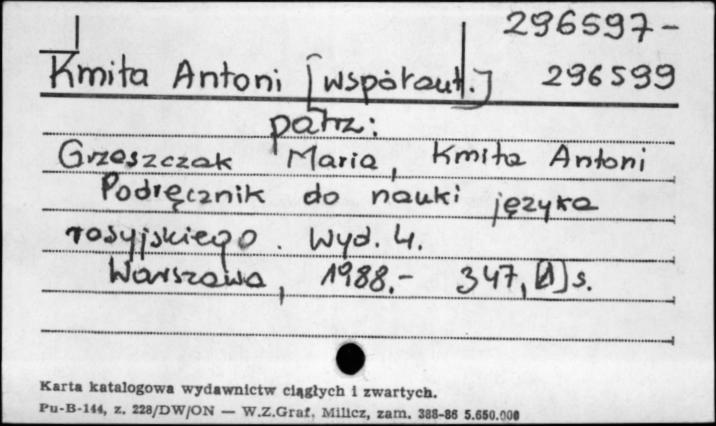 296597-
Kmita Antoni [współaut.] 296599
patrz:
Grzeszczak Maria, Kmita Antoni
Podręcznik do nauki języka
rosyjskiego. Wyd. 4.
Warszawa, 1988.- 347, [1] s.
Karta katalogowa wydawnictw ciągłych i zwartych.
Pu-B-144, z. 228/DW/ON — W.Z.Graf. Milicz, zam. 388-86 5.650.000